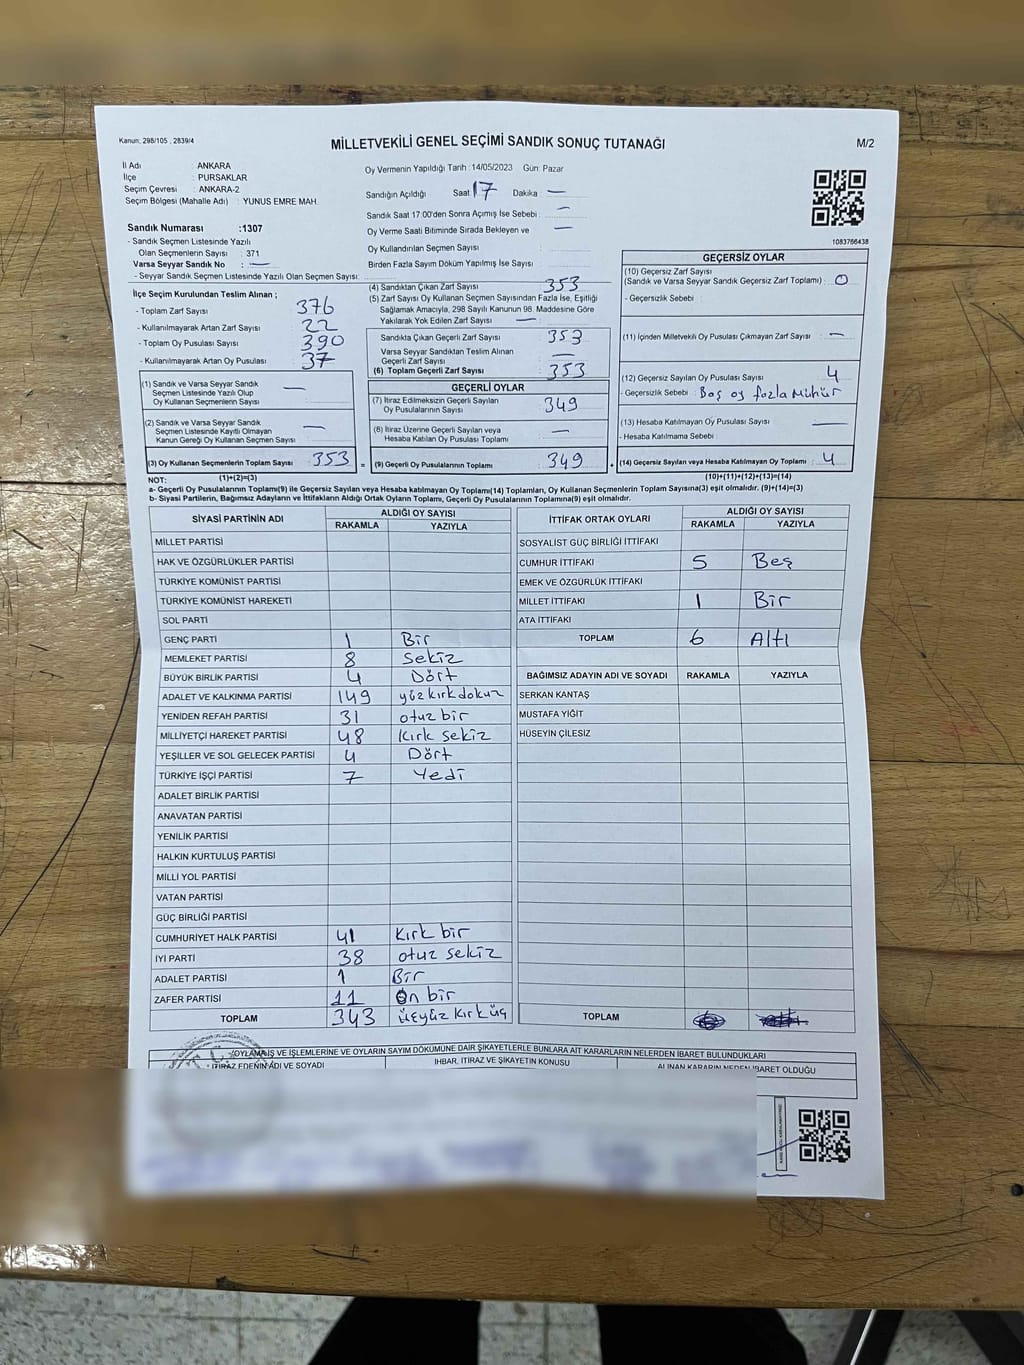 Kanun: 298/105 , 2839/4
MİLLETVEKİLİ GENEL SEÇİMİ SANDIK SONUÇ TUTANAĞI
M/2
İl Adı : ANKARA
İlçe : PURSAKLAR
Seçim Çevresi : ANKARA-2
Seçim Bölgesi (Mahalle Adı) : YUNUS EMRE MAH.
Oy Vermenin Yapıldığı Tarih : 14/05/2023 Gün: Pazar
Sandığın Açıldığı Saat: 17 Dakika : —
Sandık Saat 17:00'den Sonra Açımış İse Sebebi : —
Oy Verme Saati Bitiminde Sırada Bekleyen ve : —
Oy Kullandırılan Seçmen Sayısı
Birden Fazla Sayım Döküm Yapılmış İse Sayısı
1083766438
Sandık Numarası :1307
- Sandık Seçmen Listesinde Yazılı
Olan Seçmenlerin Sayısı : 371
Varsa Seyyar Sandık No : —
- Seyyar Sandık Seçmen Listesinde Yazılı Olan Seçmen Sayısı:
İlçe Seçim Kurulundan Teslim Alınan ;
- Toplam Zarf Sayısı 376
- Kullanılmayarak Artan Zarf Sayısı 22
- Toplam Oy Pusulası Sayısı 390
- Kullanılmayarak Artan Oy Pusulası 37
(1) Sandık ve Varsa Seyyar Sandık —
Seçmen Listesinde Yazılı Olup
Oy Kullanan Seçmenlerin Sayısı
(2) Sandık ve Varsa Seyyar Sandık —
Seçmen Listesinde Kayıtlı Olmayan
Kanun Gereği Oy Kullanan Seçmen Sayısı
(3) Oy Kullanan Seçmenlerin Toplam Sayısı 353 =
(4) Sandıktan Çıkan Zarf Sayısı 353
(5) Zarf Sayısı Oy Kullanan Seçmen Sayısından Fazla İse, Eşitliği
Sağlamak Amacıyla, 298 Sayılı Kanunun 98. Maddesine Göre
Yakılarak Yok Edilen Zarf Sayısı : —
Sandıkta Çıkan Geçerli Zarf Sayısı 353
Varsa Seyyar Sandıktan Teslim Alınan —
Geçerli Zarf Sayısı
(6) Toplam Geçerli Zarf Sayısı 353
GEÇERLİ OYLAR
(7) İtiraz Edilmeksizin Geçerli Sayılan 349
Oy Pusulalarının Sayısı
(8) İtiraz Üzerine Geçerli Sayılan veya —
Hesaba Katılan Oy Pusulası Toplamı
(9) Geçerli Oy Pusulalarının Toplamı 349 +
GEÇERSİZ OYLAR
(10) Geçersiz Zarf Sayısı
(Sandık ve Varsa Seyyar Sandık Geçersiz Zarf Toplamı) : 0
- Geçersizlik Sebebi :
(11) İçinden Milletvekili Oy Pusulası Çıkmayan Zarf Sayısı —
(12) Geçersiz Sayılan Oy Pusulası Sayısı 4
- Geçersizlik Sebebi : Boş oy fazla Mühür
(13) Hesaba Katılmayan Oy Pusulası Sayısı —
- Hesaba Katılmama Sebebi
(14) Geçersiz Sayılan veya Hesaba Katılmayan Oy Toplamı 4
NOT: (1)+(2)=(3)
(10)+(11)+(12)+(13)=(14)
a- Geçerli Oy Pusulalarının Toplamı(9) ile Geçersiz Sayılan veya Hesaba katılmayan Oy Toplamı(14) Toplamları, Oy Kullanan Seçmenlerin Toplam Sayısına(3) eşit olmalıdır. (9)+(14)=(3)
b- Siyasi Partilerin, Bağımsız Adayların ve İttifakların Aldığı Ortak Oyların Toplamı, Geçerli Oy Pusulalarının Toplamına(9) eşit olmalıdır.
SİYASİ PARTİNİN ADI ALDIĞI OY SAYISI
RAKAMLA YAZIYLA
MİLLET PARTİSİ
HAK VE ÖZGÜRLÜKLER PARTİSİ
TÜRKİYE KOMÜNİST PARTİSİ
TÜRKİYE KOMÜNİST HAREKETİ
SOL PARTİ
GENÇ PARTİ 1 Bir
MEMLEKET PARTİSİ 8 Sekiz
BÜYÜK BİRLİK PARTİSİ 4 Dört
ADALET VE KALKINMA PARTİSİ 149 yüz kırk dokuz
YENİDEN REFAH PARTİSİ 31 otuz bir
MİLLİYETÇİ HAREKET PARTİSİ 48 Kırk sekiz
YEŞİLLER VE SOL GELECEK PARTİSİ 4 Dört
TÜRKİYE İŞÇİ PARTİSİ 7 Yedi
ADALET BİRLİK PARTİSİ
ANAVATAN PARTİSİ
YENİLİK PARTİSİ
HALKIN KURTULUŞ PARTİSİ
MİLLİ YOL PARTİSİ
VATAN PARTİSİ
GÜÇ BİRLİĞİ PARTİSİ
CUMHURİYET HALK PARTİSİ 41 Kırk bir
İYİ PARTİ 38 otuz sekiz
ADALET PARTİSİ 1 Bir
ZAFER PARTİSİ 11 On bir
TOPLAM 343 üçyüz kırk üç
İTTİFAK ORTAK OYLARI ALDIĞI OY SAYISI
RAKAMLA YAZIYLA
SOSYALİST GÜÇ BİRLİĞİ İTTİFAKI
CUMHUR İTTİFAKI 5 Beş
EMEK VE ÖZGÜRLÜK İTTİFAKI
MİLLET İTTİFAKI 1 Bir
ATA İTTİFAKI
TOPLAM 6 Altı
BAĞIMSIZ ADAYIN ADI VE SOYADI RAKAMLA YAZIYLA
SERKAN KANTAŞ
MUSTAFA YİĞİT
HÜSEYİN ÇİLESİZ
TOPLAM
OYLAMA İŞ VE İŞLEMLERİNE VE OYLARIN SAYIM DÖKÜMÜNE DAİR ŞİKAYETLERLE BUNLARA AİT KARARLARIN NELERDEN İBARET BULUNDUKLARI
İTİRAZ EDENİN ADI VE SOYADI İHBAR, İTİRAZ VE ŞİKAYETİN KONUSU ALINAN KARARIN NEDEN İBARET OLDUĞU